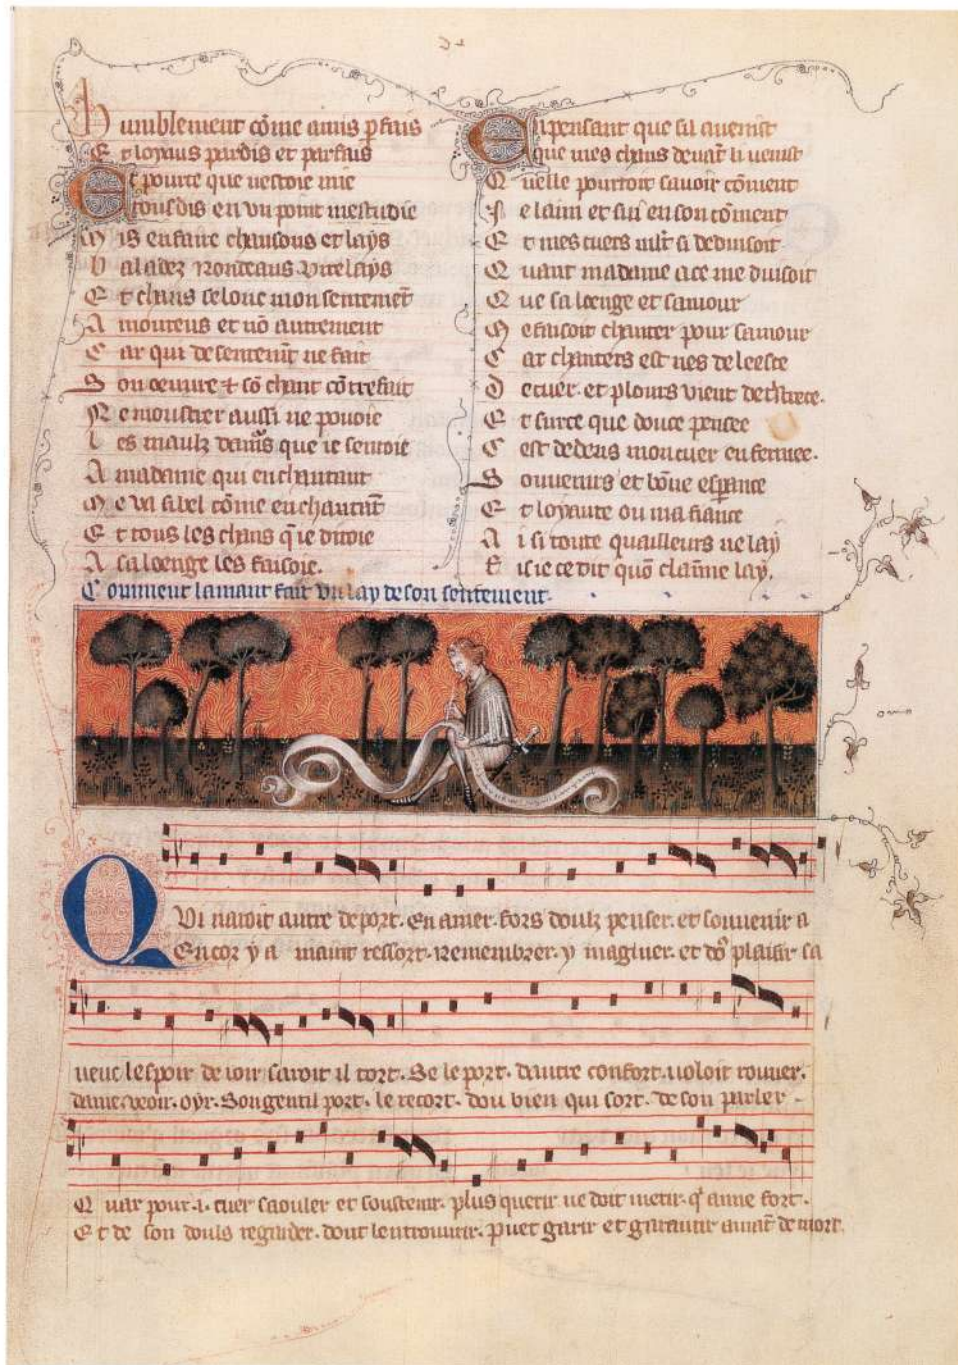 Humblement cõme amis p̃fais
Et loyaus par dis et par fais
Et pource que nestoie mie
Tousdis en vn point mestudie
Mis en faire chansons et lays
Baladez Rondeaus virelays
Et chans selonc mon sentemẽt
Amoureus et nõ autrement
Car qui de sentemẽt ne fait
Son oeuure & sõ chant cõtrefait
Ne moustrer aussi ne pouoie
Les maulz damrs que ie sentoie
A madame qui en chantant
Me va si bel cõme enchantãt
Et tous les chans q̃ ie ditoie
A sa loenge les faisoie.
En pensant que sil auenist
que mes chans deuãt li venist
Quelle pourroit sauoir cõment
Ie laim et sui en son cõment
Et mes cuers mlt si deduisoit
Quant madame a ce me duisoit
Que sa loenge et samour
Me faisoit chanter pour samour
Car chanters est nes de leesce
De cuer. et plours vient de tristece.
Et sur ce que douce pensee
Est dedens mon cuer enfermee.
Souuenirs et bõne esperance
Et loyaute ou ma fiance
Ai si toute quailleurs ne lay
Fis ie ce dit quõ claimme lay.
Comment lamant fait vn lay de son sentement.
QVi naroit autre deport. En amer. fors doulz penser. et souuenir a
Encor y a maint ressort. Remembrer. ymaginer. et dõ plaisir sa
ueuc lespoir de ioir saroit il tort. Se le port. dautre confort. uoloit rouuer.
dame veoir. oyr. Son gentil port. le recort. dou bien qui sort. de son parler
Quar pour .i. cuer saouler et soustenir. plus querir ne doit merir. q̃ aime fort.
Et de son douls regarder. dont lentrouurir. puet garir et garantir amãt de mort.